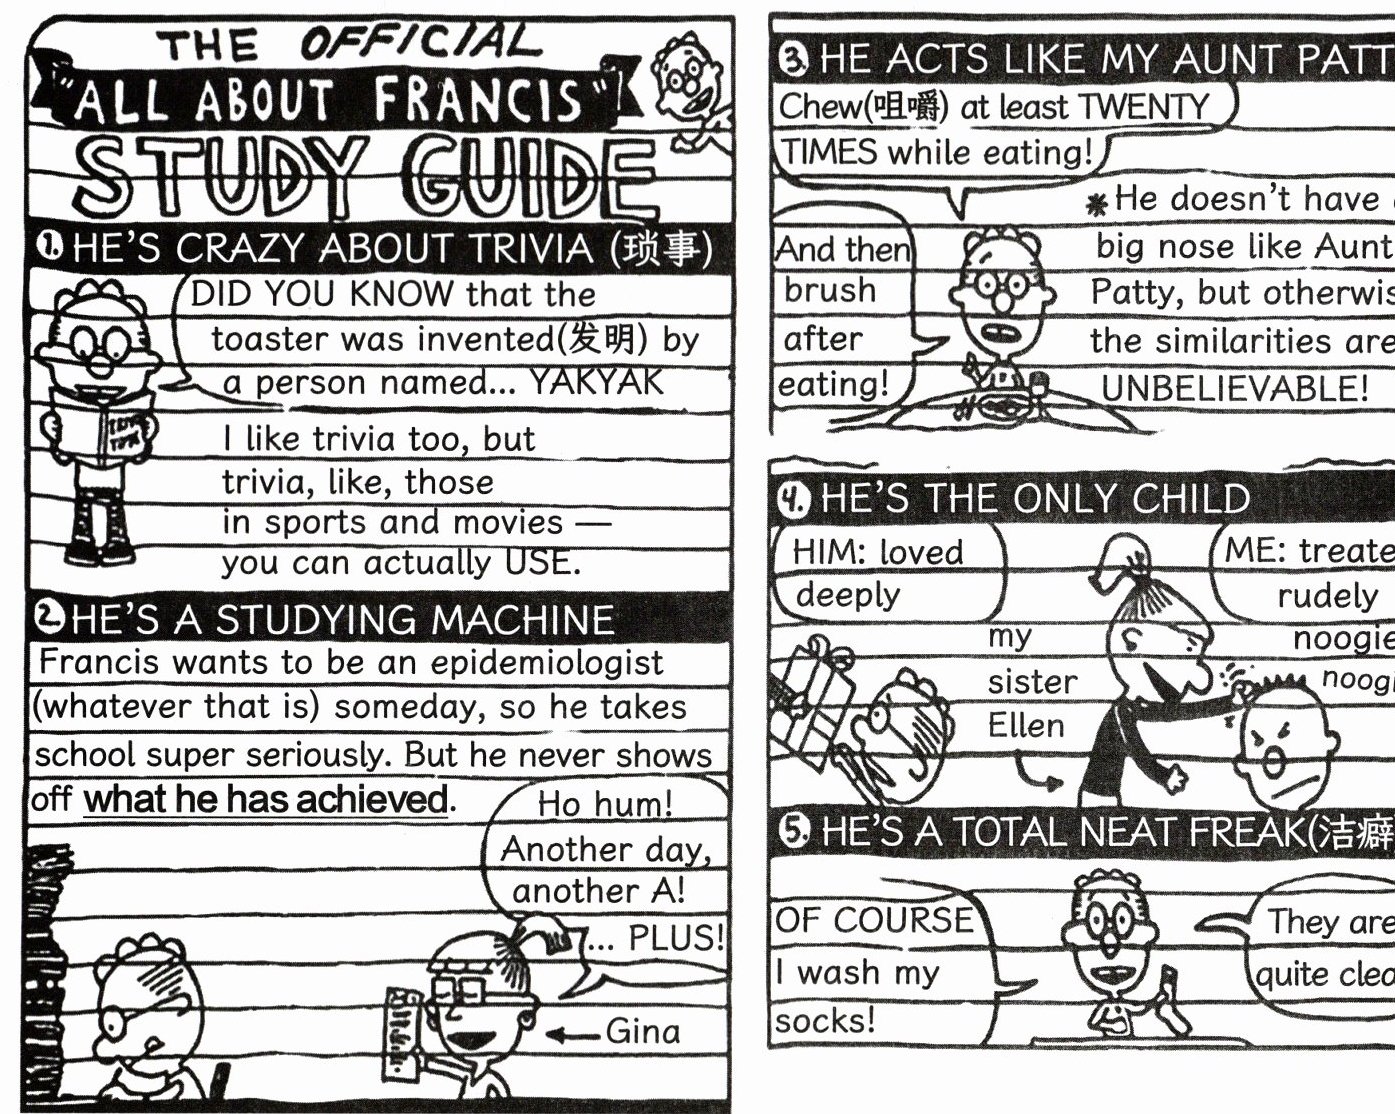 THE OFFICIAL
"ALL ABOUT FRANCIS"
STUDY GUIDE
1. HE'S CRAZY ABOUT TRIVIA (琐事)
DID YOU KNOW that the
toaster was invented(发明) by
a person named... YAKYAK
I like trivia too, but
trivia, like, those
in sports and movies —
you can actually USE.
2. HE'S A STUDYING MACHINE
Francis wants to be an epidemiologist
(whatever that is) someday, so he takes
school super seriously. But he never shows
off what he has achieved.
Ho hum!
Another day,
another A!
... PLUS!
Gina
3. HE ACTS LIKE MY AUNT PATT
Chew(咀嚼) at least TWENTY
TIMES while eating!
And then
brush
after
eating!
* He doesn't have
big nose like Aunt
Patty, but otherwis
the similarities are
UNBELIEVABLE!
4. HE'S THE ONLY CHILD
HIM: loved
deeply
my
sister
Ellen
ME: treate
rudely
noogie
noogi
5. HE'S A TOTAL NEAT FREAK(洁癖
OF COURSE
I wash my
socks!
They are
quite clea